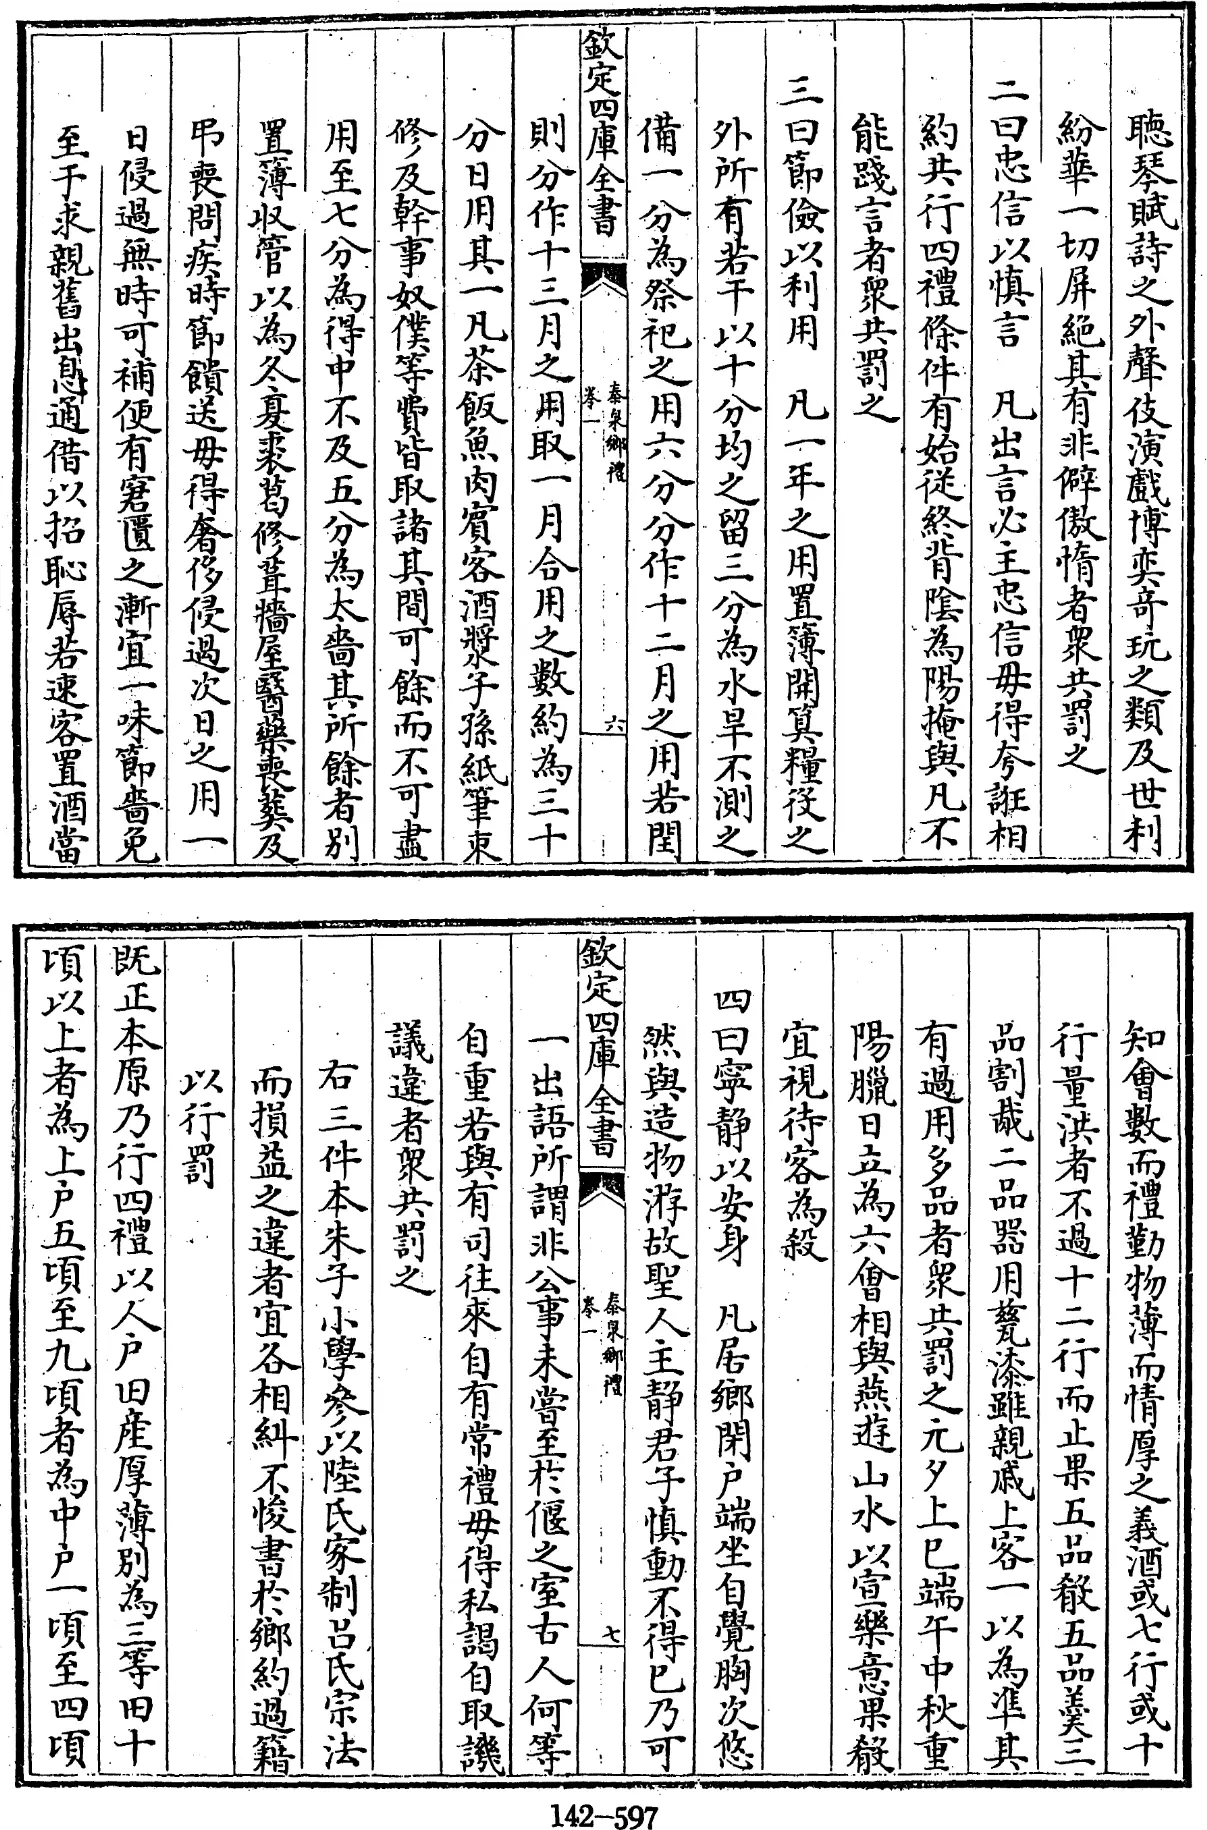 聽琴賦詩之外聲伎演戲博奕奇玩之類及世利
紛華一切屏絕其有非僻傲惰者衆共罰之
二曰忠信以慎言　凡出言必主忠信毋得夸誑相
約共行四禮條件有始從終背陰為陽掩與凡不
能踐言者衆共罰之
三曰節儉以利用　凡一年之用置簿開算糧役之
外所有若干以十分均之留三分為水旱不測之
備一分為祭祀之用六分分作十二月之用若閏
欽定四庫全書
泰泉鄉禮
卷一
六
則分作十三月之用取一月合用之數約為三十
分日用其一凡茶飯魚肉賓客酒漿子孫紙筆束
修及幹事奴僕等費皆取諸其間可餘而不可盡
用至七分為得中不及五分為太嗇其所餘者別
置簿收管以為冬夏裘葛修葺牆屋醫藥喪葬及
弔喪問疾時節饋送毋得奢侈侵過次日之用一
日侵過無時可補便有窘匱之漸宜一味節嗇免
至于求親舊出息通借以招恥辱若速客置酒當
知會數而禮勤物薄而情厚之義酒或七行或十
行量洪者不過十二行而止果五品殽五品羹三
品割胾二品器用甆漆雖親戚上客一以為準其
有過用多品者衆共罰之元夕上巳端午中秋重
陽臘日立為六會相與燕遊山水以宣樂意果殽
宜視待客為殺
四曰寧靜以安身　凡居鄉閉户端坐自覺胸次悠
然與造物游故聖人主靜君子慎動不得已乃可
欽定四庫全書
泰泉鄉禮
卷一
七
一出語所謂非公事未嘗至於偃之室古人何等
自重若與有司往來自有常禮毋得私謁自取譏
議違者衆共罰之
右三件本朱子小學參以陸氏家制吕氏宗法
而損益之違者宜各相糾不悛書於鄉約過籍
以行罰
既正本原乃行四禮以人户田産厚薄別為三等田十
頃以上者為上户五頃至九頃者為中户一頃至四頃
142-597